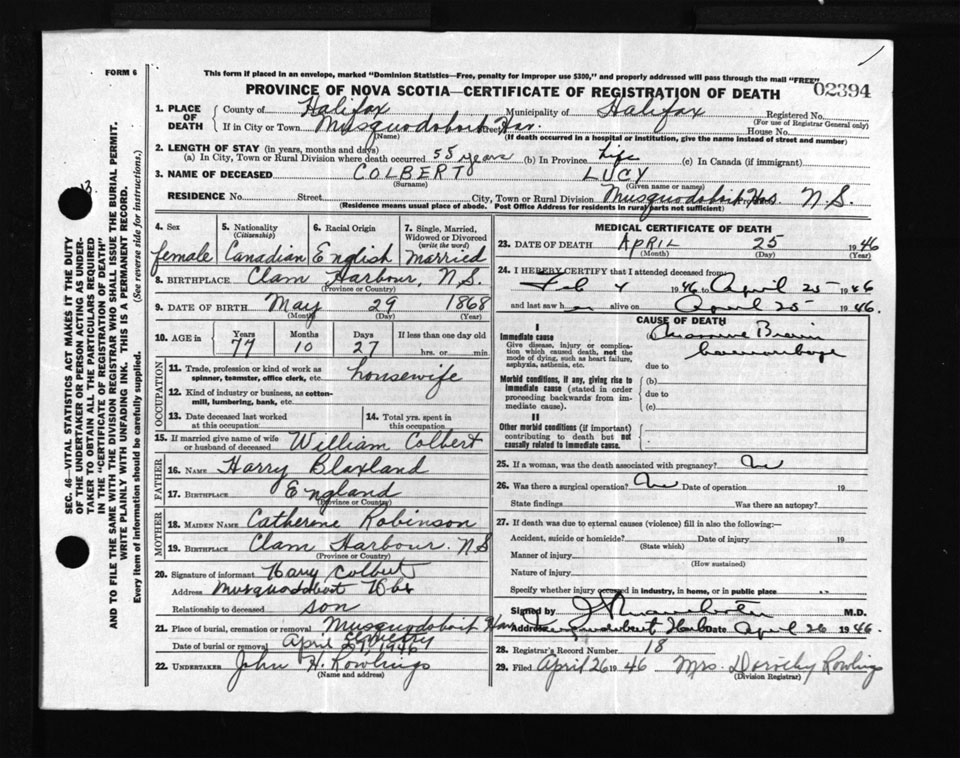 FORM 6
This form if placed in an envelope, marked "Dominion Statistics—Free, penalty for improper use $300," and properly addressed will pass through the mail "FREE"
PROVINCE OF NOVA SCOTIA—CERTIFICATE OF REGISTRATION OF DEATH
02394
1. PLACE OF DEATH
County of Halifax Municipality of Halifax Registered No.
(For use of Registrar General only)
If in City or Town Musquodoboit Har. Street House No.
(Name) (If death occurred in a hospital or institution, give the name instead of street and number)
2. LENGTH OF STAY (in years, months and days)
(a) In City, Town or Rural Division where death occurred 55 years (b) In Province Life (c) In Canada (if immigrant)
3. NAME OF DECEASED COLBERT LUCY
(Surname) (Given name or names)
RESIDENCE No. Street City, Town or Rural Division Musquodoboit Har. N.S.
(Residence means usual place of abode. Post Office Address for residents in rural parts not sufficient)
4. Sex female
5. Nationality (Citizenship) Canadian
6. Racial Origin English
7. Single, Married, Widowed or Divorced (write the word) Married
8. BIRTHPLACE Clam Harbour, N.S.
(Province or Country)
9. DATE OF BIRTH May 29 1868
(Month) (Day) (Year)
10. AGE in Years 77 Months 10 Days 27 If less than one day old hrs. or min.
OCCUPATION
11. Trade, profession or kind of work as spinner, teamster, office clerk, etc. housewife
12. Kind of industry or business, as cotton-mill, lumbering, bank, etc.
13. Date deceased last worked at this occupation
14. Total yrs. spent in this occupation
15. If married give name of wife or husband of deceased William Colbert
FATHER
16. NAME Harry Blaxland
17. BIRTHPLACE England
(Province or Country)
MOTHER
18. MAIDEN NAME Catherine Robinson
19. BIRTHPLACE Clam Harbour. N.S
(Province or Country)
20. Signature of informant Harry Colbert
Address Musquodoboit Hbr
Relationship to deceased son
21. Place of burial, cremation or removal Musquodoboit Har. Cemetery
Date of burial or removal April 27, 1946
22. UNDERTAKER John H. Rowlings
(Name and address)
MEDICAL CERTIFICATE OF DEATH
23. DATE OF DEATH APRIL 25 1946
(Month) (Day) (Year)
24. I HEREBY CERTIFY that I attended deceased from
Feb 4 1946 to April 25 1946
and last saw h er alive on April 25 1946.
CAUSE OF DEATH
I
Immediate cause
Give disease, injury or complication which caused death, not the mode of dying, such as heart failure, asphyxia, asthenia, etc.
Massive Brain
haemorrhage
due to
Morbid conditions, if any, giving rise to immediate cause (stated in order proceeding backwards from immediate cause).
(b)
due to
(c)
II
Other morbid conditions (if important) contributing to death but not causally related to immediate cause.
25. If a woman, was the death associated with pregnancy? No
26. Was there a surgical operation? No Date of operation 19
State findings Was there an autopsy?
27. If death was due to external causes (violence) fill in also the following:—
Accident, suicide or homicide? Date of injury 19
(State which)
Manner of injury
(How sustained)
Nature of injury
Specify whether injury occurred in industry, in home, or in public place
Signed by M.D.
Address Musquodoboit Harb Date April 26 1946.
28. Registrar's Record Number 18
29. Filed April 26 1946 Mrs. Dorothy Rowlings
(Division Registrar)
SEC. 46—VITAL STATISTICS ACT MAKES IT THE DUTY
OF THE UNDERTAKER OR PERSON ACTING AS UNDER-
TAKER TO OBTAIN ALL THE PARTICULARS REQUIRED
IN THE "CERTIFICATE OF REGISTRATION OF DEATH"
AND TO FILE THE SAME WITH THE DIVISION REGISTRAR WHO SHALL ISSUE THE BURIAL PERMIT.
WRITE PLAINLY WITH UNFADING INK. THIS IS A PERMANENT RECORD.
Every item of information should be carefully supplied. (See reverse side for instructions.)